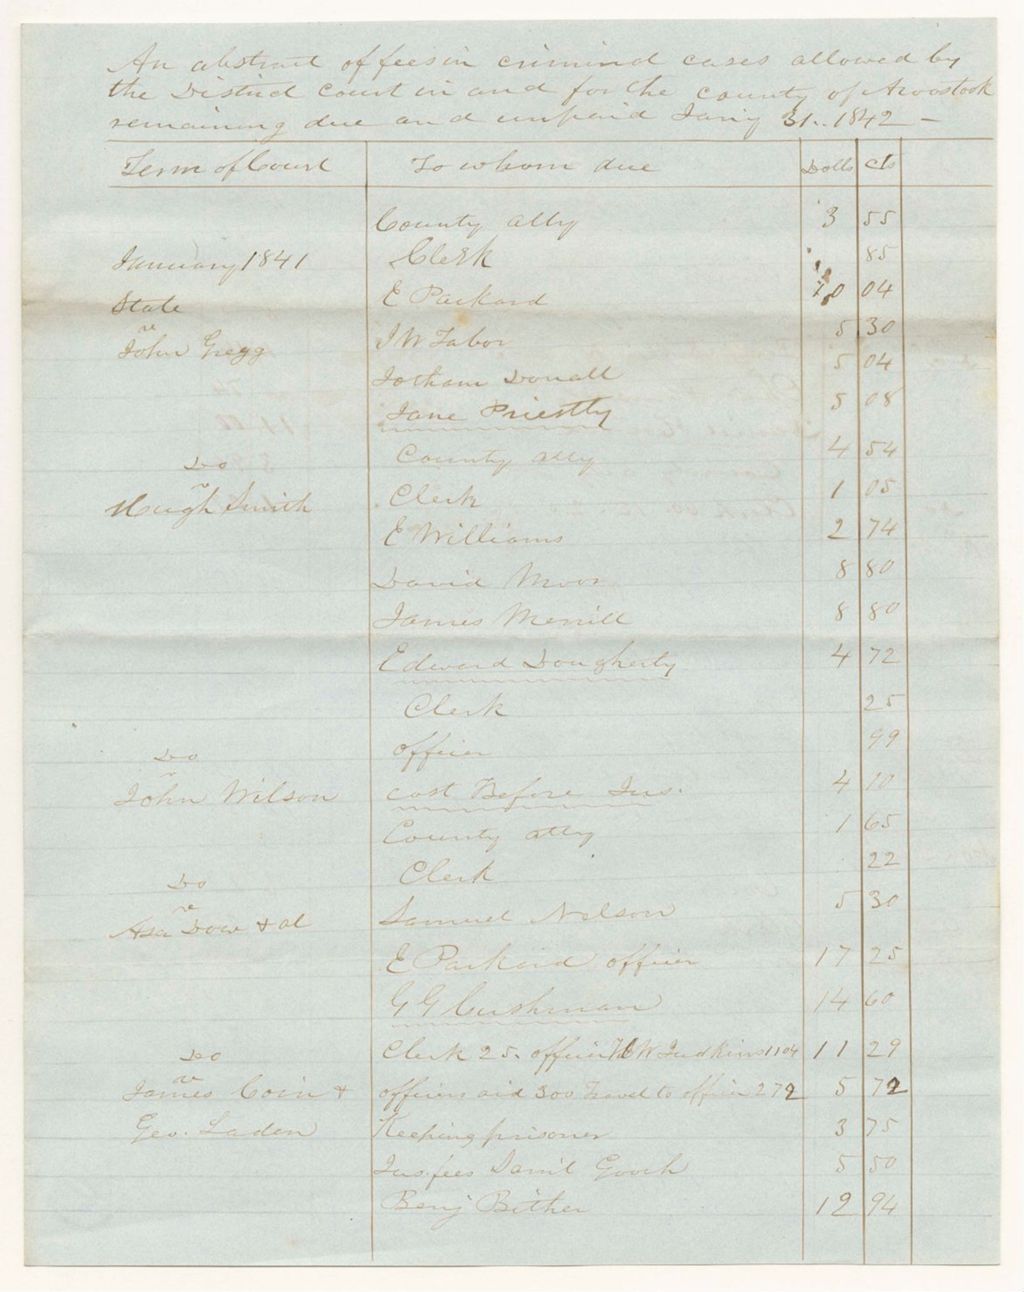 An abstract of fees in criminal cases allowed by
the District Court in and for the county of Aroostook
remaining due and unpaid Jany 31. 1842 -
Term of Court To whom due Dolls Cts
County atty 3 55
January 1841 Clerk 85
State E Packard 04
v
John Gregg J W Tabor 5 30
Jotham Donall 5 04
Jane Priestly 5 08
Do County atty 4 54
v
Hugh Smith Clerk 1 05
E Williams 2 74
David Moor 8 80
James Merrill 8 80
Edward Dougherty 4 72
Clerk 25
Do officer 99
v
John Wilson cost Before Jus. 4 10
County atty 1 65
Do Clerk 22
v
Asa Dow & al Samuel Nelson 5 30
E Packard officer 17 25
G G Cushman 14 60
Do Clerk 25. officer W Judkins 1104 11 29
v
James Coin & officers aid 300 Travel to officer 272 5 72
Geo. Laden Keeping prisoner 3 75
Jus. fees Danil Gooch 5 50
Benj Bither 12 94